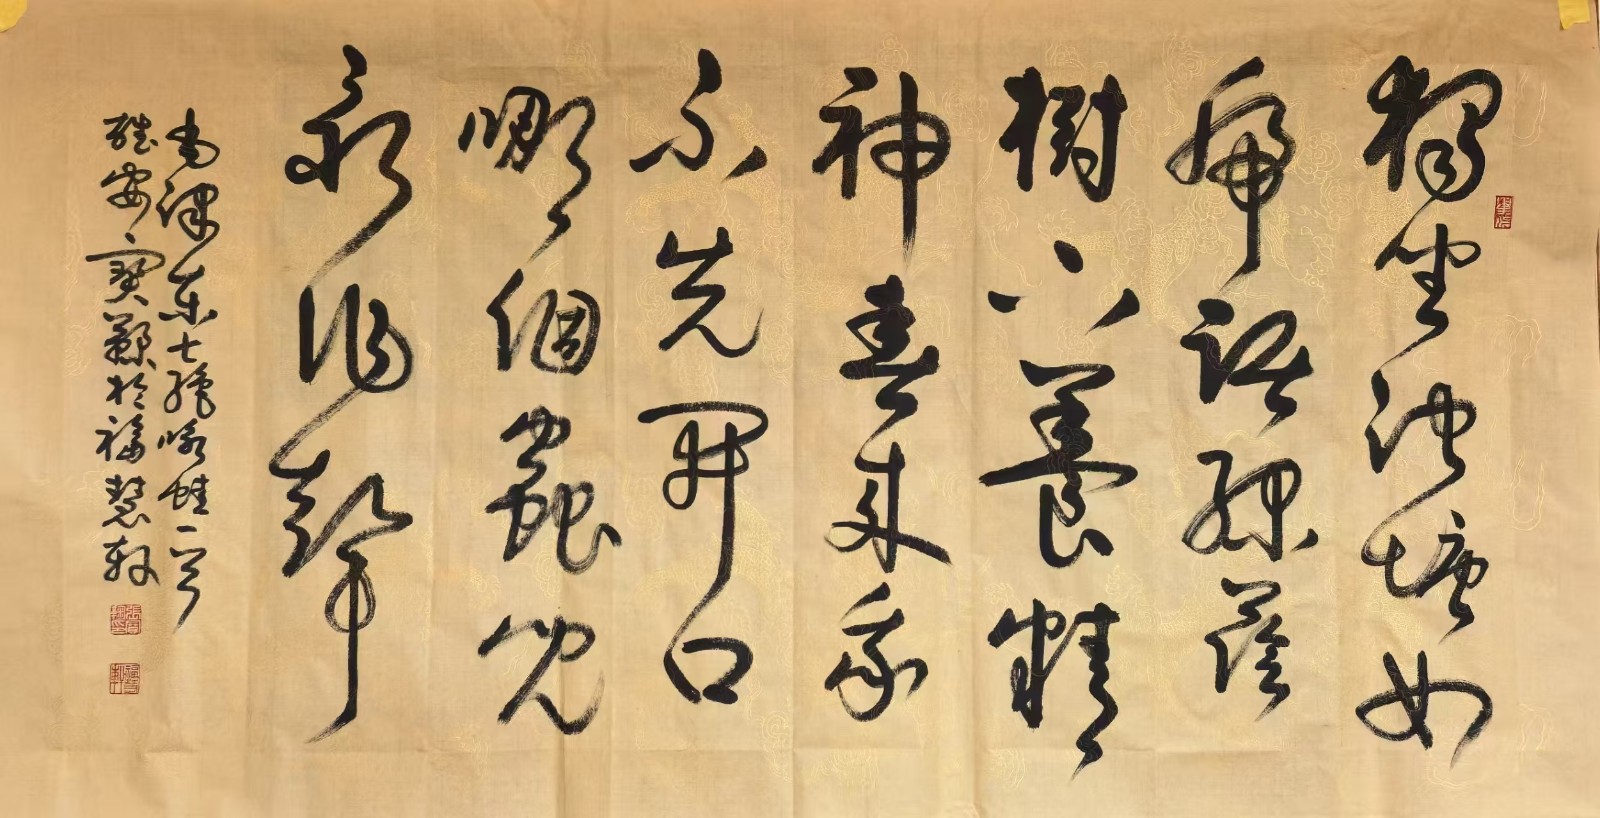 獨坐池塘如
虎踞綠蔭
樹下養精
神春來我
不先開口
哪個蟲兒
敢作聲
毛澤東七絕咏蛙一首
安寶於福慧軒